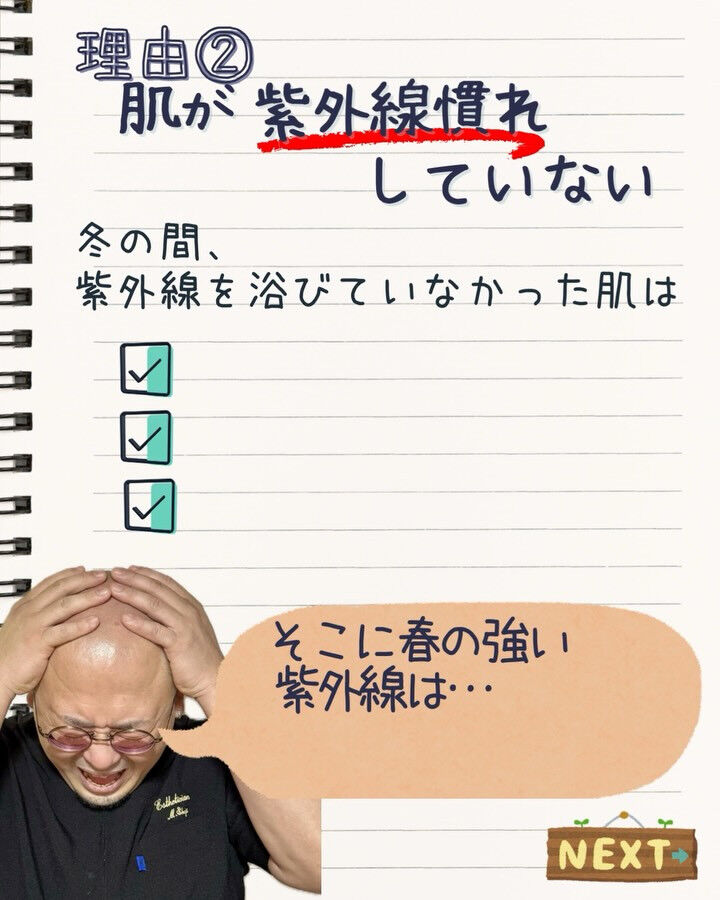 理由②
肌が紫外線慣れ
していない
冬の間、
紫外線を浴びていなかった肌は
そこに春の強い
紫外線は…
Esthetician
NEXT